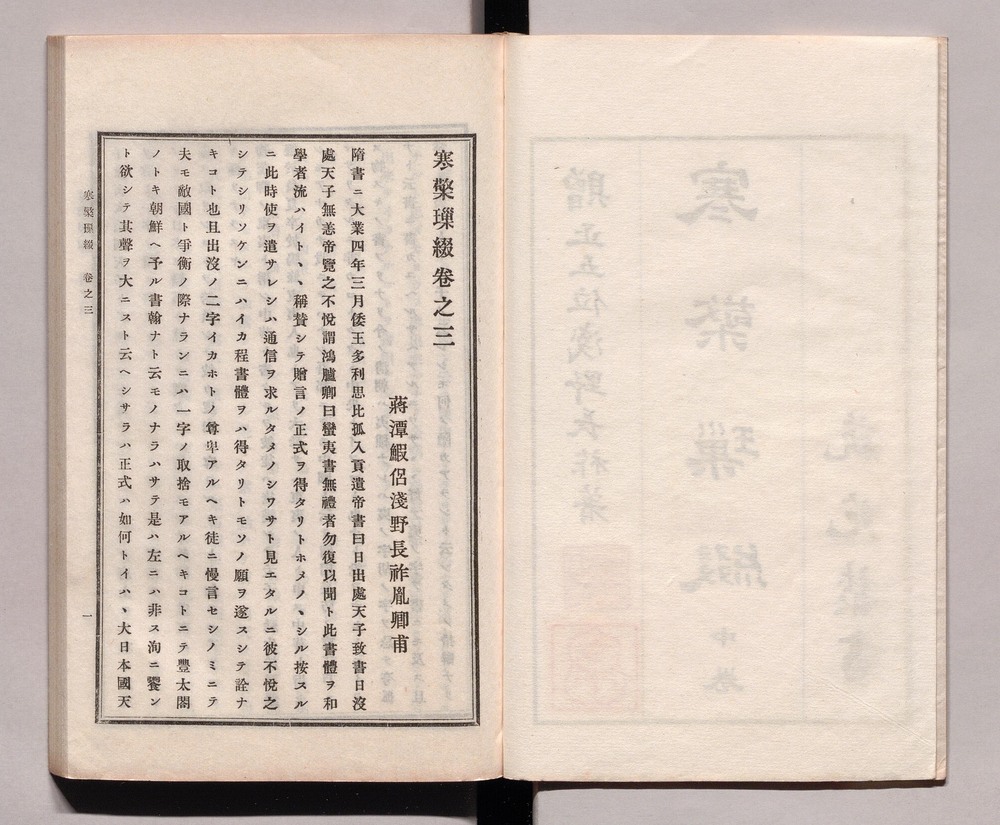 寒檠璅綴卷之三
蔣潭鰕侶淺野長祚胤卿甫
隋書ニ大業四年三月倭王多利思比孤入貢遣帝書曰日出處天子致書日沒
處天子無恙帝覽之不悅謂鴻臚卿曰蠻夷書無禮者勿復以聞ト此書體ヲ和
學者流ハイト、、稱賛シテ贈言ノ正式ヲ得タリトホメノ、シル按スル
ニ此時使ヲ遣サレシハ通信ヲ求ルタメノシワサト見エタルニ彼不悅之
シテシリソケンニハイカ程書體ヲハ得タリトモソノ願ヲ遂スシテ詮ナ
キコト也且出沒ノ二字イカホトノ尊卑アルヘキ徒ニ慢言セシノミニテ
夫モ敵國ト爭衡ノ際ナランニハ一字ノ取捨モアルヘキコトニテ豐太閤
ノトキ朝鮮ヘ予ル書翰ナト云モノナラハサテ是ハ左ニハ非ス洵ニ饗ン
ト欲シテ其聲ヲ大ニスト云ヘシサラハ正式ハ如何トイハ、大日本國天
寒檠璅綴　卷之三　一